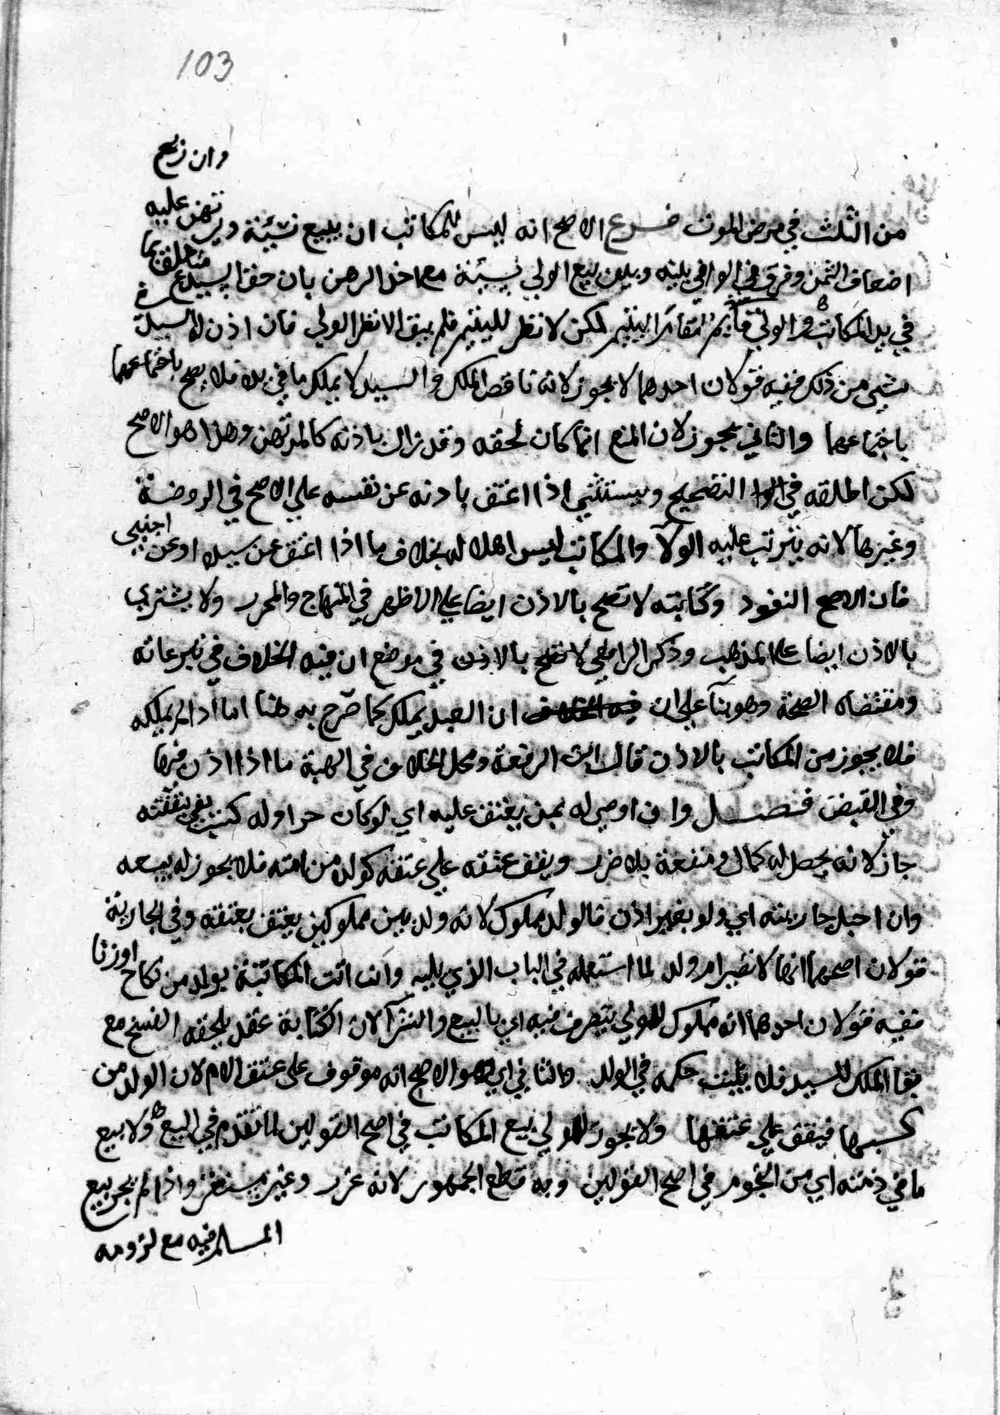 103
وان زيع
تهن عليه
من الثلث في مرض الموت فرع الاصح انه ليس للمكاتب ان يبيع نسيئة وير
متعلق بما
اضعاف الثمن وفرق في الوافي بينه وبين بيع الولي نسيئة مع اخذ الرهن بان حق السيد
في يد المكاتب والولي لكن لا نظر للينيم فلم يبق الا نظر الولي فان اذن له السيد في
شيء من ذلك ففيه قولان احدهما لا يجوز لانه ناقص الملك والسيد لا يملك ما في يده فلا يصح باجتماعهما
باجتماعهما والثاني يجوز لان المنع انما كان لحقه وقد زال باذنه كالمرتهن وهذا هو الاصح
لكن اطلقه في التصحيح ويستثنى اذا اعتق باذنه عن نفسه علي الاصح في الروضة
وغيرها لانه يترتب عليه الولآ والمكاتب ليس اهلا له بخلاف ما اذا اعتق عن سيده او عن اجنبي
فان الاصح النفوذ وكتابته لا تصح بالاذن ايضا علي الاظهر في المنهاج والمحرر ولا يشتري
بالاذن ايضا علي المذهب وذكر الرافعي لا تصح بالاذن في موضع ان فيه الخلاف في تبرعاته
ومقتضاه الصحة وهو بنآ علي ان العبد يملك كما صرح به هنا اما اذا لم يملكه
فلا يجوز من المكاتب بالاذن قال ابن الرفعة ومحل الخلاف في الهبة ما اذا اذن فيها
وفي القبض فصل وان اوصي له بمن يعتق عليه اي لو كان حرا وله كسب يفي بنفقته
جاز لانه يحصل له كمال ومنفعة بلا ضرر ويقف عتقه علي عتقه كولده من امته فلا يجوز له بيعه
وان احبل جاريته اي ولو بغير اذن فالولد مملوك لانه ولد بين مملوكين يعتق بعتقه وفي الجارية
قولان اصحهما انها لا تصير ام ولد لما استعمله في الباب الذي يليه وان اتت المكاتبة بولد من نكاح او زنا
ففيه قولان احدهما انه مملوك للمولي يتصرف فيه اي بالبيع والشرآ لان الكتابة عقد يلحقه الفسخ مع
بقا الملك للسيد فلا يثبت حكمه في الولد والثاني اي وهو الاصح انه موقوف على عتق الام لان الولد من
كسبها فيقف علي عتقها ولا يجوز للمولي بيع المكاتب في اصح القولين لما تقدم في البيع ولا بيع
ما في ذمته اي من النجوم في اصح القولين وبه قطع الجمهور لانه غرر وغير مستقر واذا لم يجز بيع
المسلم فيه مع لزومه